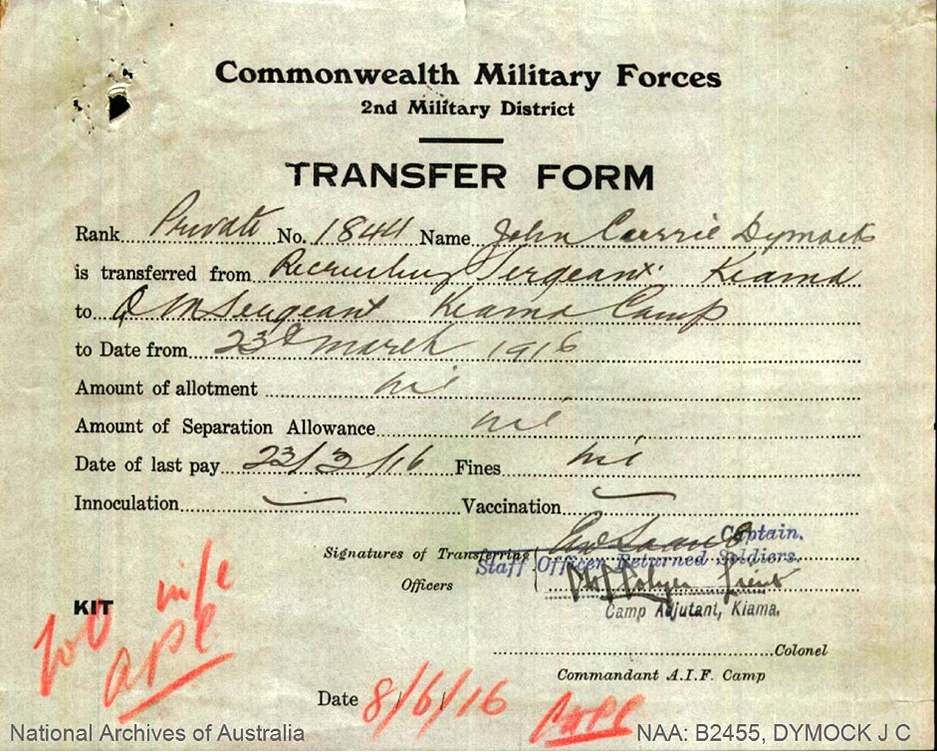 Commonwealth Military Forces
2nd Military District
TRANSFER FORM
Rank Private No. 1844 Name John Currie Dymock
is transferred from Recruiting Sergeant Kiama
to Q M Sergeant Kiama Camp
to Date from 23rd March 1916
Amount of allotment nil
Amount of Separation Allowance nil
Date of last pay 23/3/16 Fines nil
Innoculation Vaccination
Captain.
Signatures of Transferring
Staff Officer Returned Soldiers.
Officers
Camp Adjutant, Kiama.
KIT
Colonel
Commandant A.I.F. Camp
Date 8/6/16
National Archives of Australia NAA: B2455, DYMOCK J C